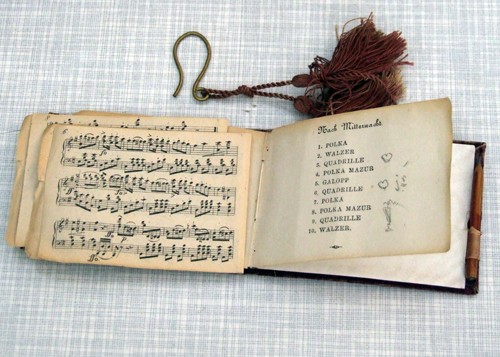 Nach Mitternacht
1. POLKA
2. WALZER
3. QUADRILLE
4. POLKA MAZUR
5. GALOPP
6. QUADRILLE
7. POLKA
8. POLKA MAZUR
9. QUADRILLE
10. WALZER.